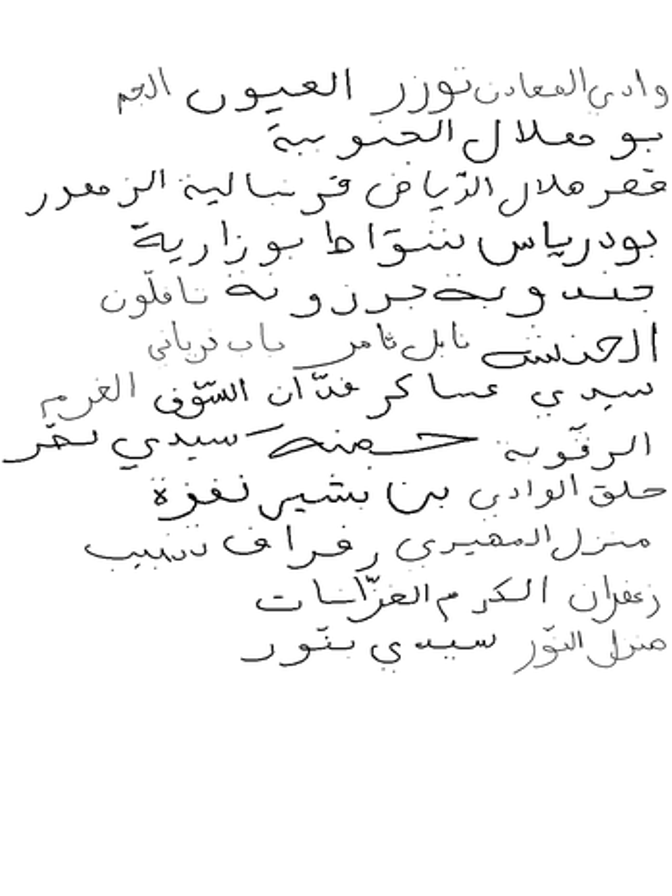 وادي المعادن توزر العيون الجم
بو هلال الجنوبية
قصر هلال الرياض قرنبالية الزهور
بودرياس شواط بوزارية
جندوبة برزونة تافلون
الحنش نابل ثامر باب فرياني
سيدي عساكر فدّان السّوق الغريم
الرقّوبة حسينة سيدي نصر
حلق الوادي بن بشير نفزة
منزل المهيري رفراف
زعفران الكرم الغزّالات
منزل النّور سيدي بنّور